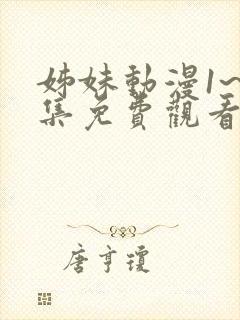 姊妹動漫1~
集免費觀看
唐亨瓊